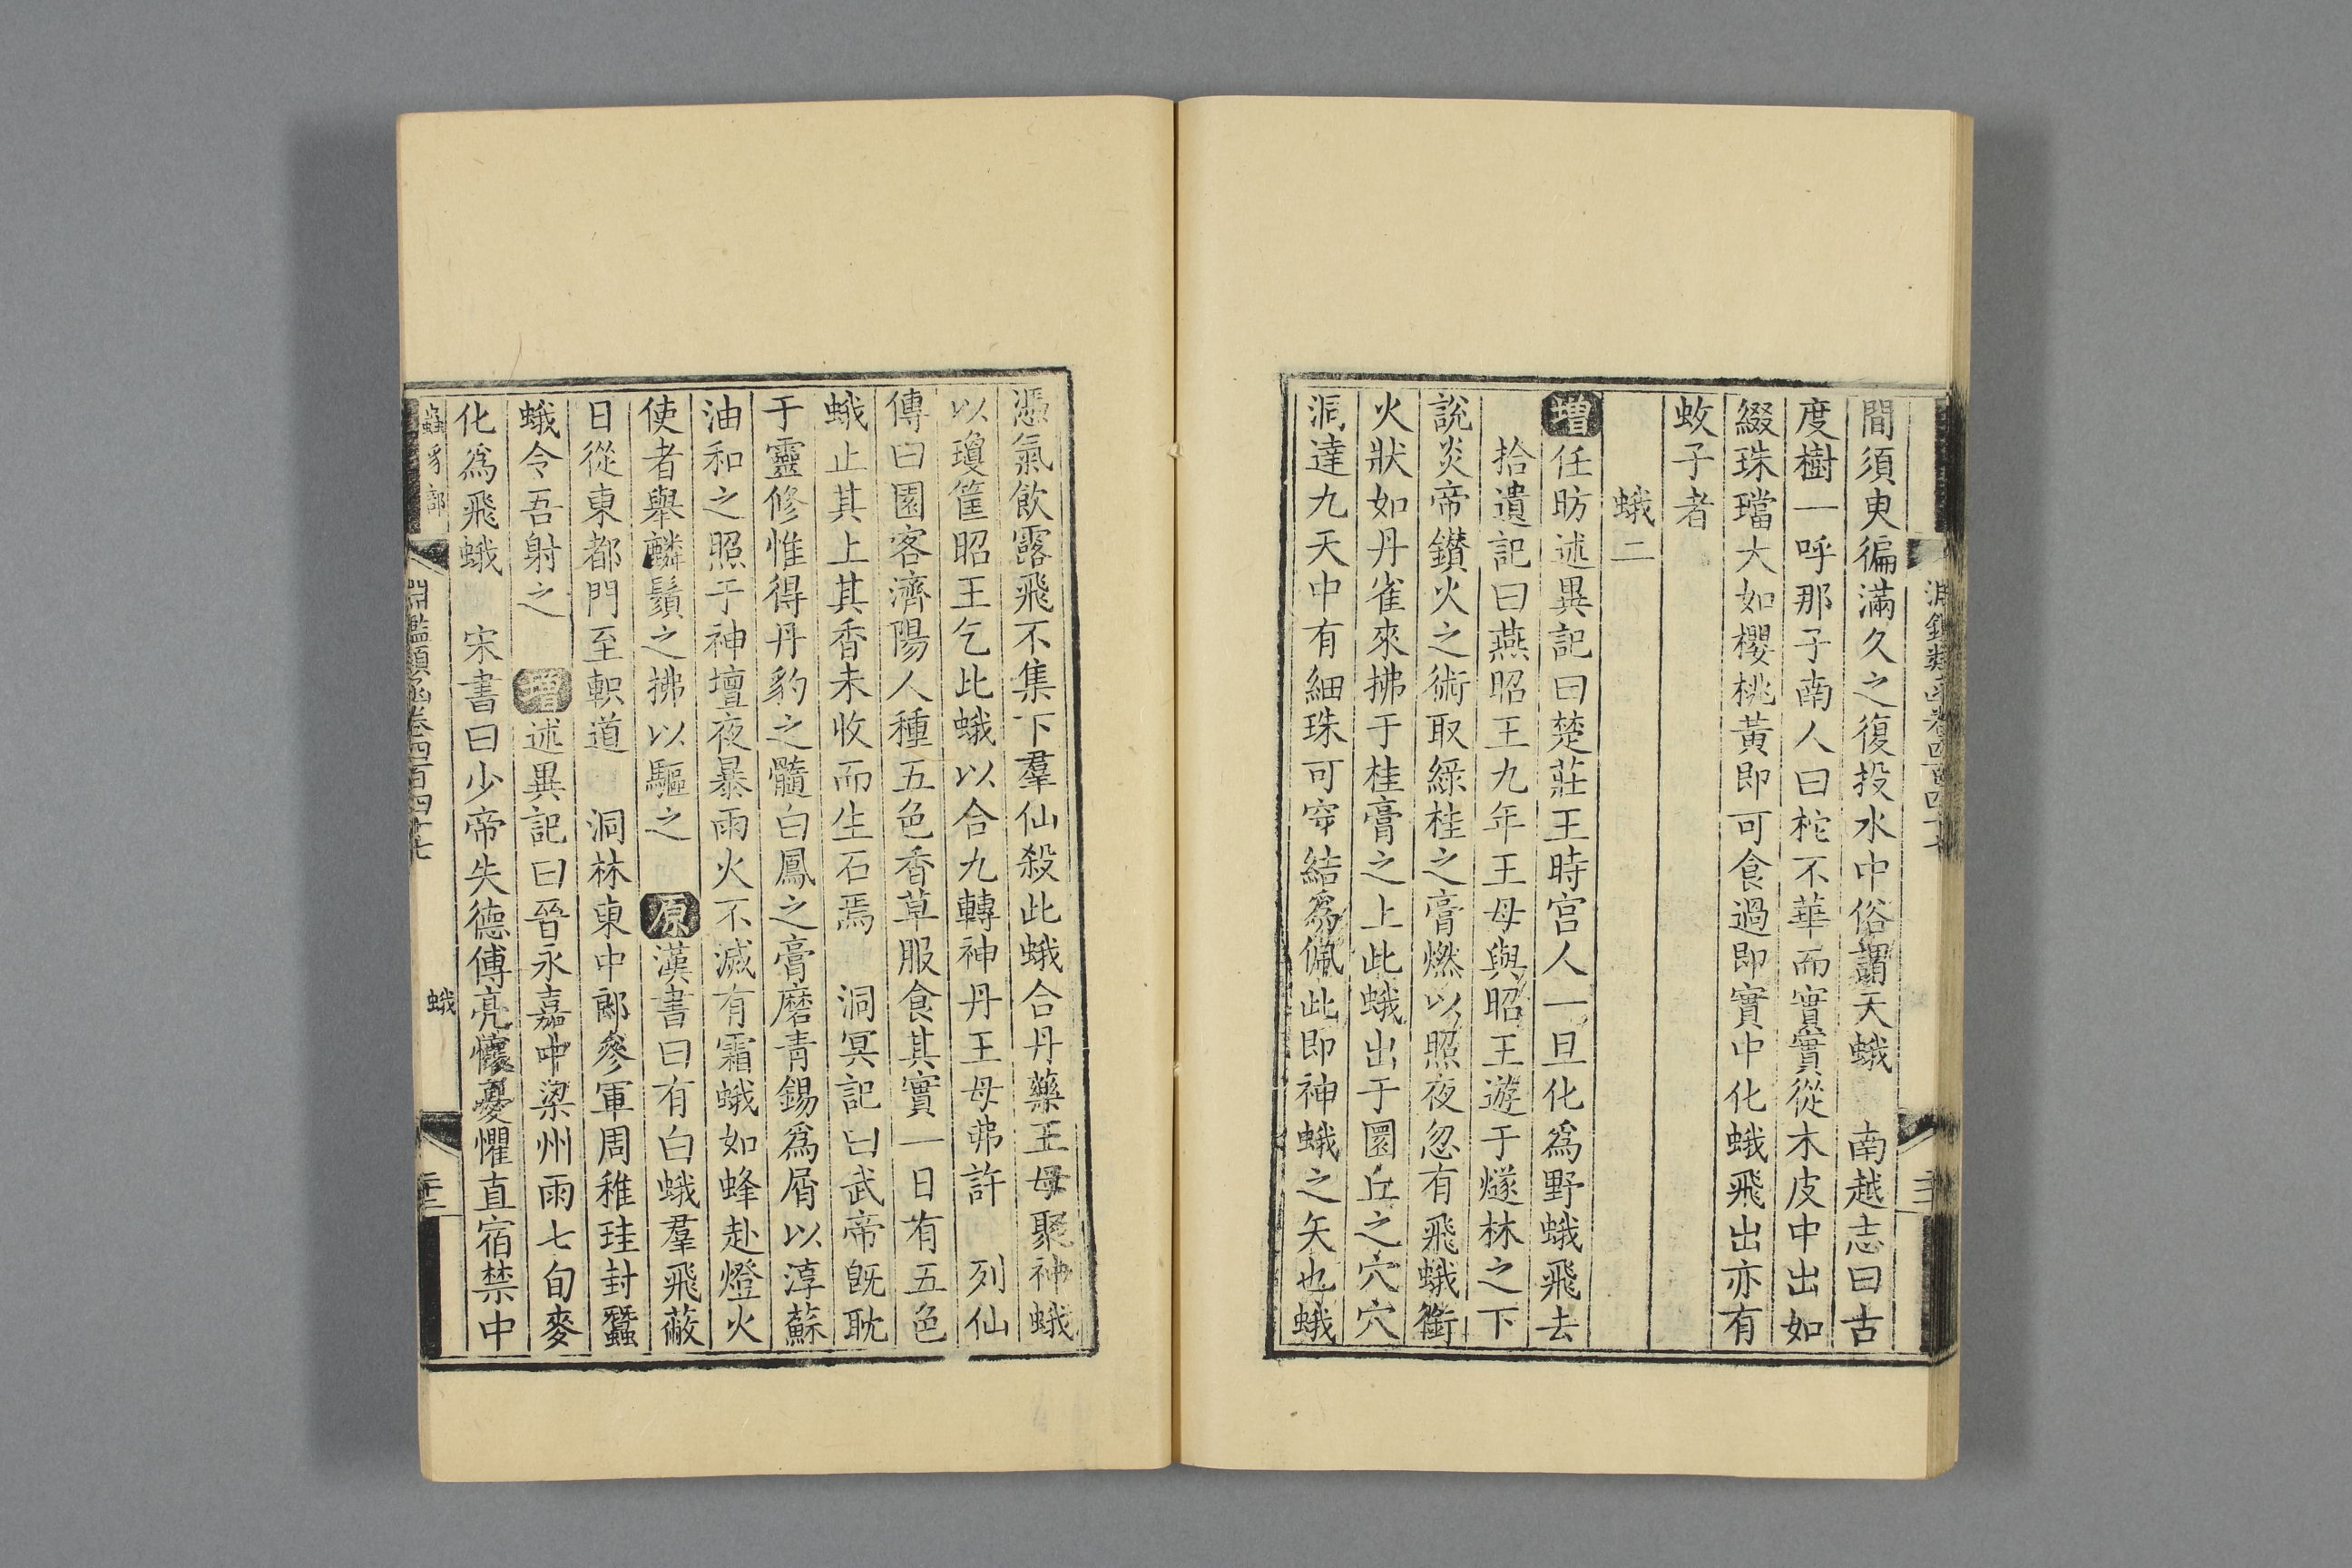 淵鑑類函卷四百四十七
間須臾徧滿久之復投水中俗謂天蛾　南越志曰古
度樹一呼那子南人曰柁不華而實實從木皮中出如
綴珠璫大如櫻桃黃即可食過即實中化蛾飛出亦有
蚊子者
蛾二
增任昉述異記曰楚莊王時宫人一旦化爲野蛾飛去
拾遺記曰燕昭王九年王母與昭王遊于燧林之下
說炎帝鑚火之術取綠桂之膏燃以照夜忽有飛蛾銜
火狀如丹雀來拂于桂膏之上此蛾出于圜丘之穴穴
洞達九天中有細珠可穿結爲佩此即神蛾之矢也蛾
憑氣飲露飛不集下羣仙殺此蛾合丹藥王母聚神蛾
以瓊筐昭王乞此蛾以合九轉神丹王母弗許　列仙
傳曰園客濟陽人種五色香草服食其實一日有五色
蛾止其上其香末收而生石焉　洞冥記曰武帝旣耽
于靈修惟得丹豹之髓白鳳之膏磨青錫爲屑以淳蘇
油和之照于神壇夜暴雨火不滅有霜蛾如蜂赴燈火
使者舉麟鬚之拂以驅之　原漢書曰有白蛾羣飛蔽
日從東都門至軹道　洞林東中郎參軍周稚珪封蠶
蛾令吾射之　增述異記曰晉永嘉中梁州雨七旬麥
化爲飛蛾　宋書曰少帝失德傅亮懷憂懼直宿禁中
蟲豸部
淵鑑類函卷四百四十七
蛾